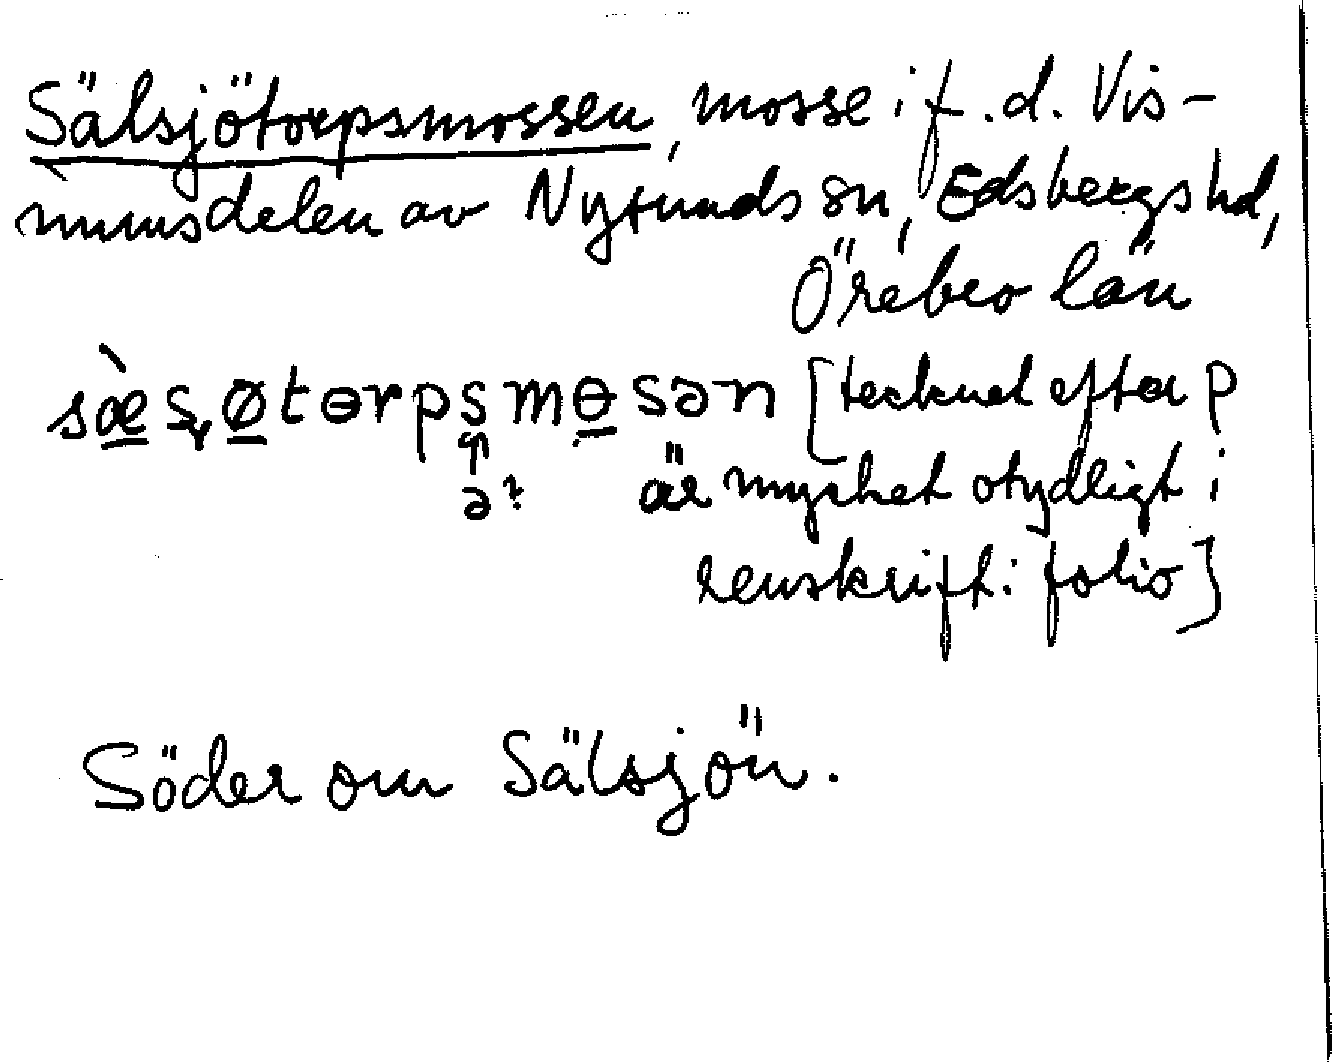 Sälsjötorpsmossen, mosse i f.d. Vis-
numsdelen av Nysunds sn, Edsbergs hd,
Örebro län
sæ̀s̨øtɵrpsmɵsən [tecknet efter p
ə? är mycket otydligt i
renskrift i folio]
Söder om Sälsjön.